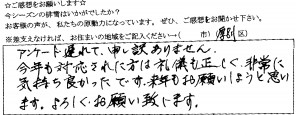 ☆ご感想をお願いします☆
今シーズンの俳背はいかがでしたか？
お客様の声が、私たちの原動力になっています。ぜひ、ご感想をお聞かせ下さい。
※差支えなければ、お住まいの地域をご記入ください→( 市) 厚別 区
アンケート遅れて、申し訳ありません。
今年も対応された方は礼儀も正しく、非常に
気持ち良かったです。来年もお願いしようと思い
ます。よろしくお願い致します。